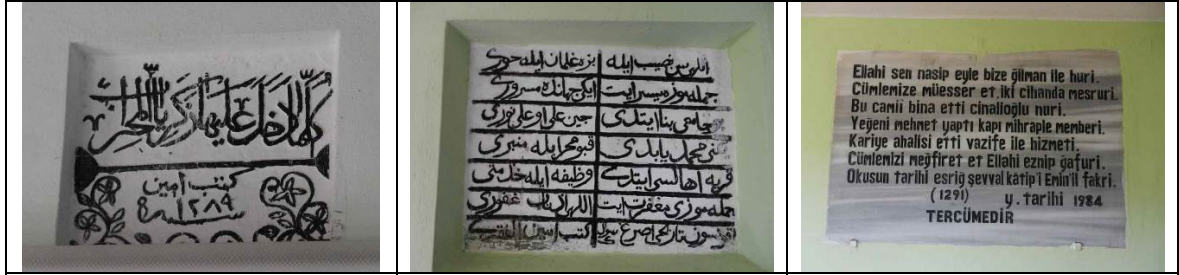 كلما دخل عليها زكريا المحراب
كتب امين
سنة ١٢٨٩
سن نصيب ايله بزه غلمان ايله حورى
جمله موزه ميسر ايت ايكى جهانده مسرورى
جامعى بنا ايتدى جين على اوغلى نورى
محمد يابدى قبو محراب ايله منبرى
قريه اهالسى ايتدى وظيفه ايله خدمتى
جمله موزى مغفرت ايت غفورى
تاريخى كتب امين الفقرى
Ellahi sen nasip eyle bize ğilman ile huri.
Cümlemize müesser et,iki cihanda mesruri.
Bu camii bina etti cinalioğlu nuri.
Yeğeni mehmet yaptı kapı mihraple memberi.
Kariye ahalisi etti vazife ile hizmeti.
Cümlemizi meğfiret et Ellahi eznip ğafuri.
Okusun tarihi esriğ şevval katip'i Emin'il fakri.
(1291) y.tarihi 1984
TERCÜMEDİR